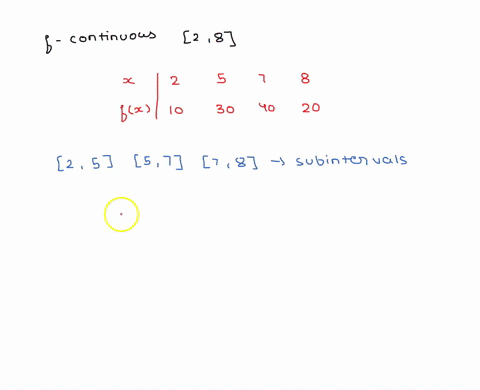 f - continuous [2,8]
x | 2 5 7 8
f(x) | 10 30 40 20
[2,5] [5,7] [7,8] → subintervals